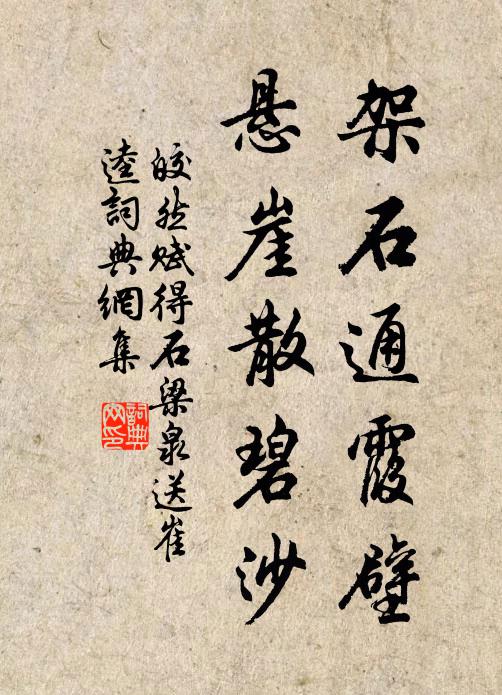 架石通霞壁
悬崖散碧沙
皎然赋得石梁泉送崔
逵詞典網集
詞典网印